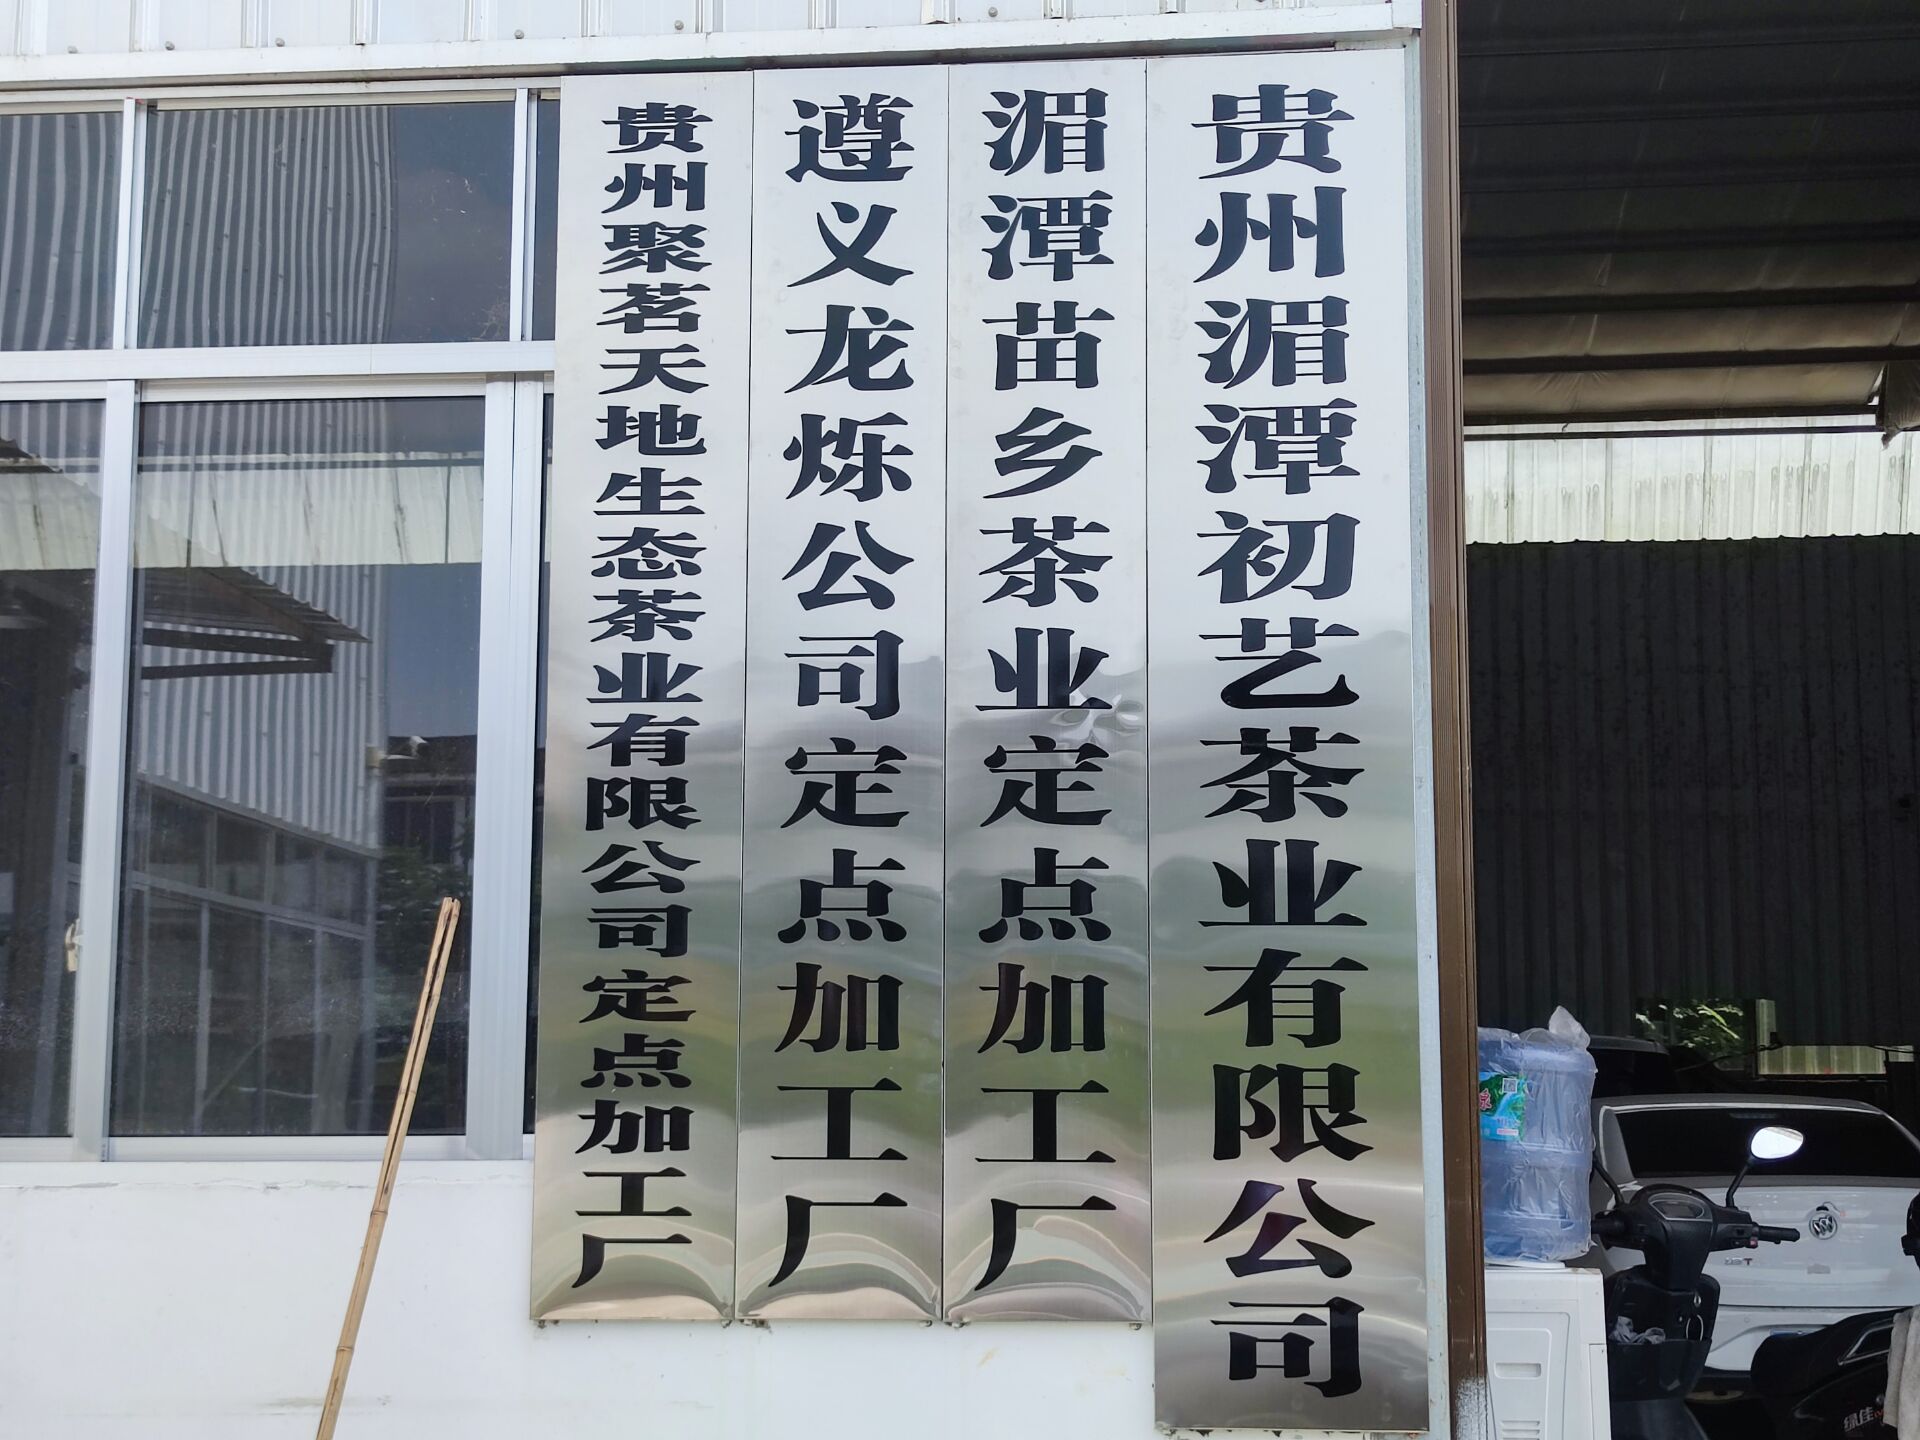 贵州湄潭初艺茶业有限公司
湄潭苗乡茶业定点加工厂
遵义龙烁公司定点加工厂
贵州聚茗天地生态茶业有限公司定点加工厂
绿佳